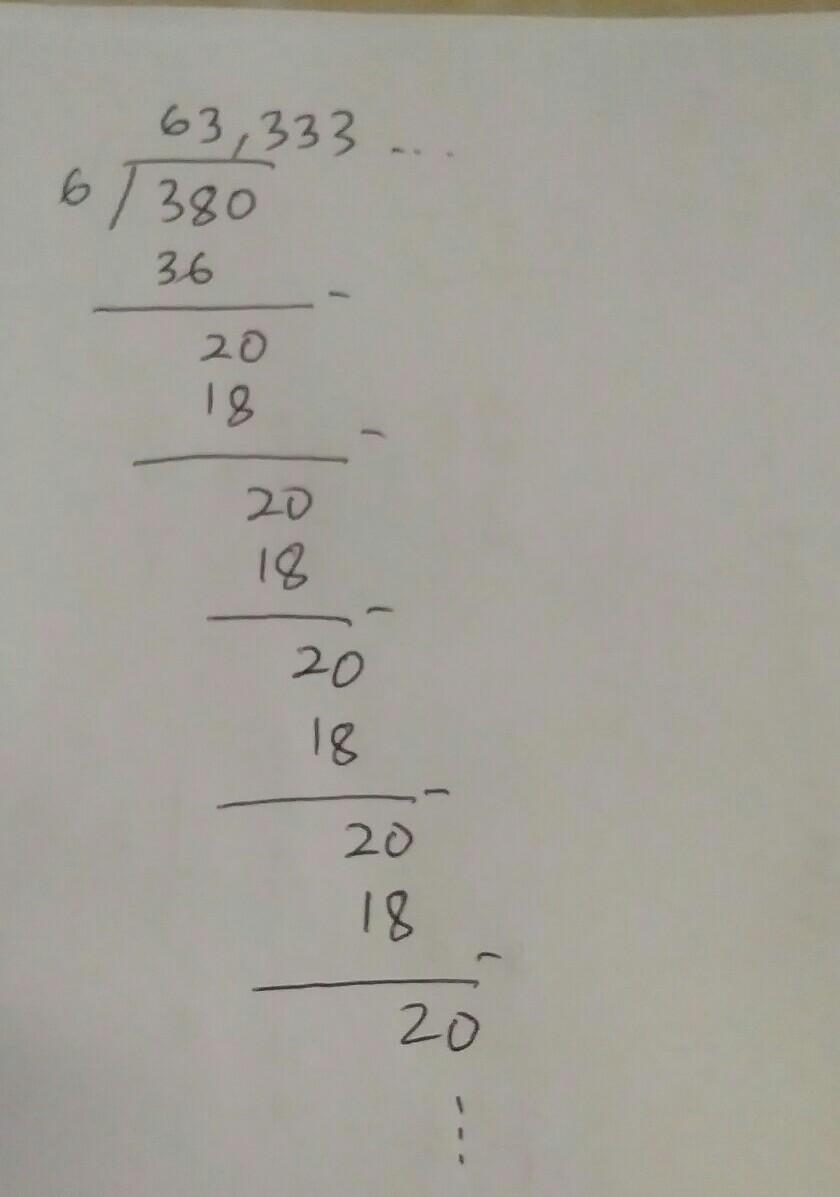 63,333 ...
6 / 380
36
-
20
18
-
20
18
-
20
18
-
20
18
-
20
⋮